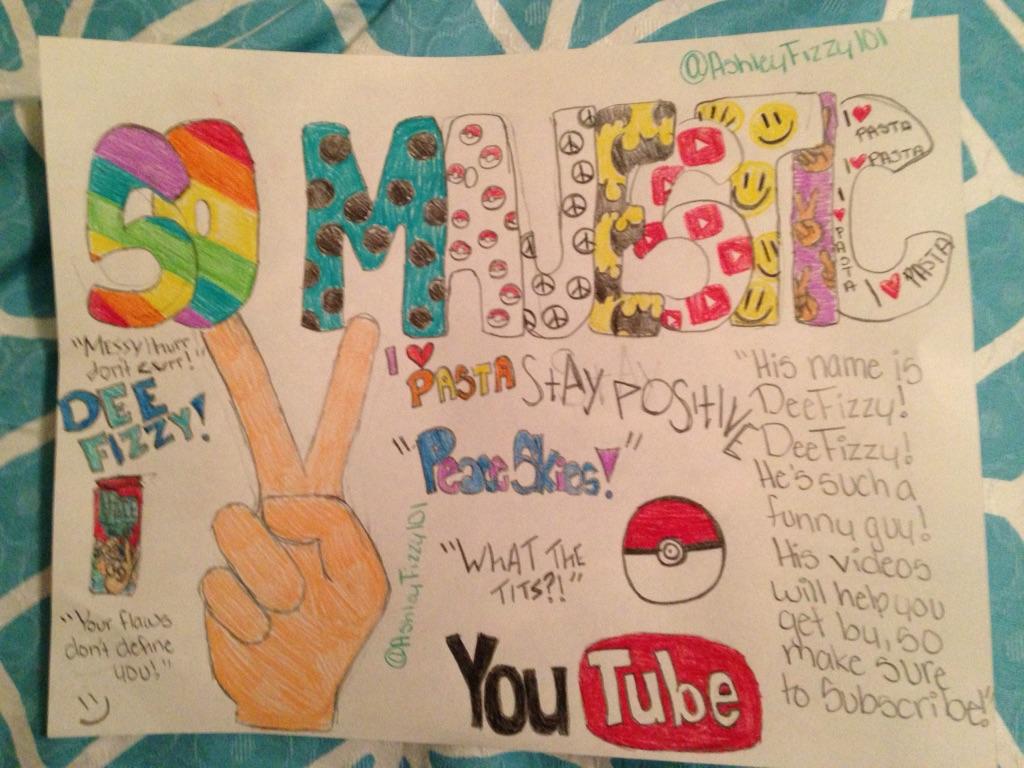 @AshleyFizzy101
SO MAJESTIC
I ❤ PASTA
I ❤ PASTA
I ❤ PASTA
I ❤ PASTA
"Messy hurr
don't curr!"
DEE
FIZZY!
"Your flaws
don't define
you!"
I ❤ PASTA
STAY POSITIVE
"Peace Skies!"
@AshleyFizzy101
"WHAT THE
TITS?!"
YouTube
"His name is
DeeFizzy!
DeeFizzy!
He's such a
funny guy!
His videos
will help you
get by, so
make sure
to Subscribe!"